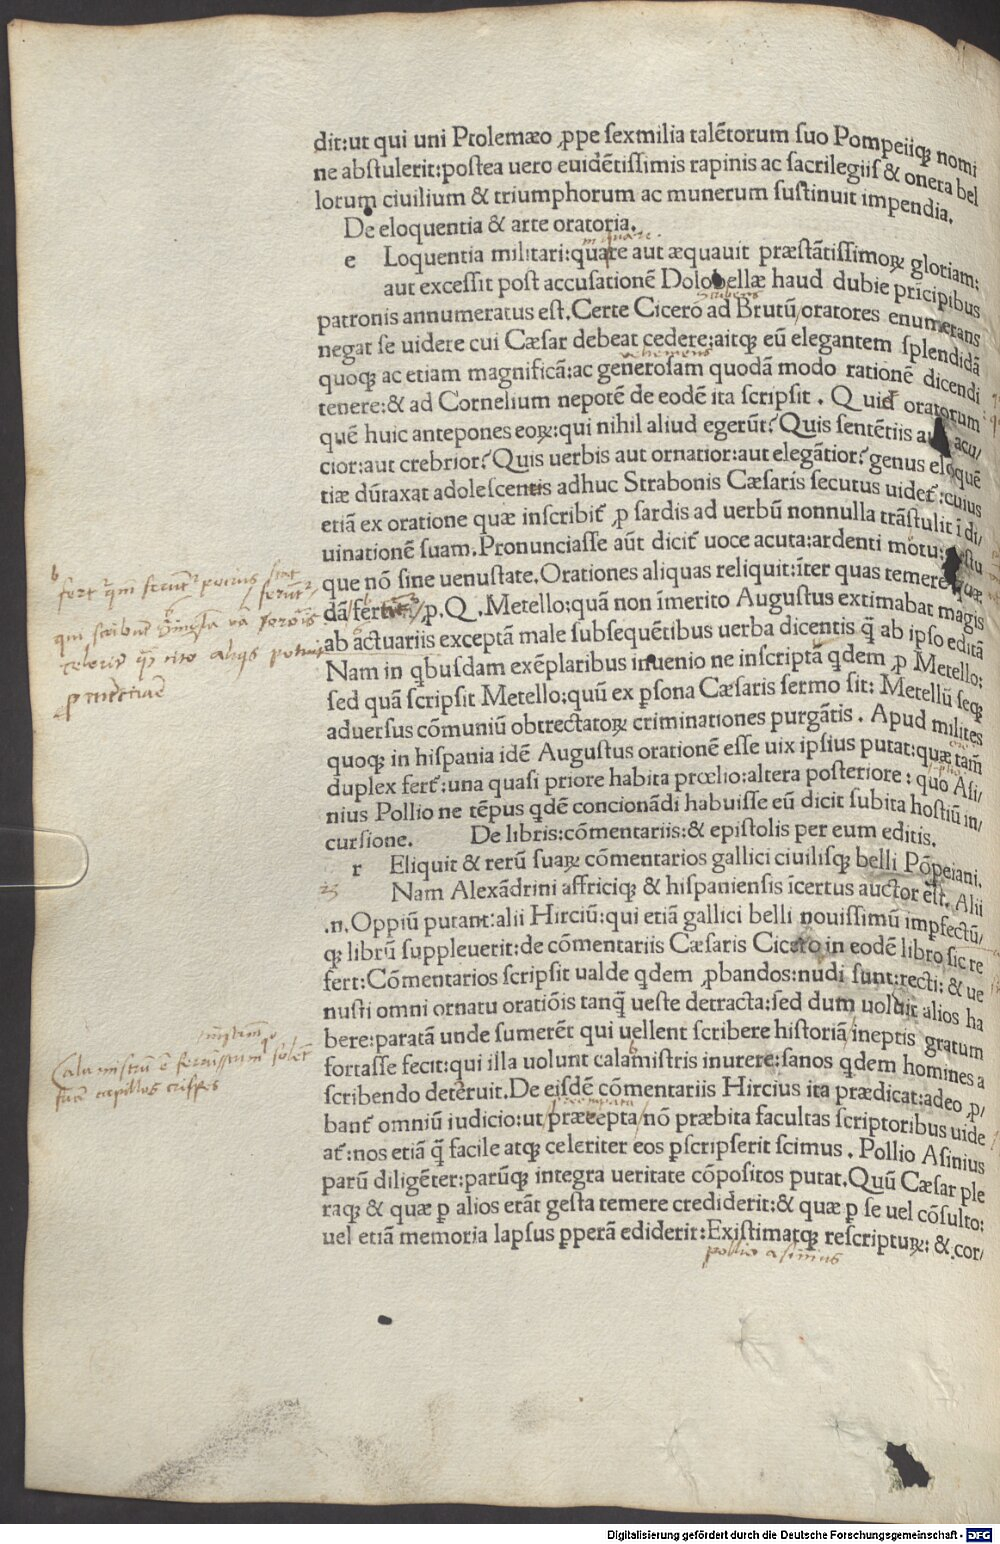 dit:ut qui uni Ptolemæo ꝓpe sexmilia talētorum suo Pompeiiqꝫ nomi
ne abstulerit:postea uero euidētissimis rapinis ac sacrilegiis & onera bel
lorum ciuilium & triumphorum ac munerum sustinuit impendia.
De eloquentia & arte oratoria.
e Loquentia militari:quare aut æquauit præstātissimoꝝ gloriam:
aut excessit post accusationē Dolobellæ haud dubie prīcipibus
patronis annumeratus est.Certe Cicero ad Brutū/oratores enumerans
negat se uidere cui Cæsar debeat cedere:aitqꝫ eū elegantem splendidā
uehemens
quoqꝫ ac etiam magnificā:ac generosam quodā modo rationē dicendi
tenere:& ad Cornelium nepotē de eodē ita scripsit . Quid oratorum
quē huic antepones eoꝝ:qui nihil aliud egerūt? Quis sentētiis aut acu/
cior:aut crebrior? Quis uerbis aut ornatior:aut elegātior? genus eloquē
tiæ dūtaxat adolescentis adhuc Strabonis Cæsaris secutus uidet᷑:cuius
etiā ex oratione quæ inscribit᷑ ꝓ sardis ad uerbū nonnulla trāstulit ī di/
uinationē suam.Pronunciasse aūt dicit᷑ uoce acuta:ardenti motu: gestu
que nō sine uenustate.Orationes aliquas reliquit:īter quas temere quæ
dā fert᷑ ꝓ.Q.Metello:quā non īmerito Augustus extimabat magis
ab actuariis exceptā male subsequētibus uerba dicentis q̄ ab ipso editā
Nam in qbusdam exēplaribus inuenio ne inscriptā qdem ꝓ Metello:
sed quā scripsit Metello:quū ex ꝑsona Cæsaris sermo sit: Metellū seqꝫ
aduersus cōmuniū obtrectatoꝝ criminationes purgātis . Apud milites
quoqꝫ in hispania idē Augustus orationē esse uix ipsius putat:quæ tam̄
duplex fert᷑:una quasi priore habita prœlio:altera posteriore : quo Asi/
nius Pollio ne tēpus qdē concionādi habuisse eū dicit subita hostiū in/
cursione. De libris:cōmentariis:& epistolis per eum editis.
r Eliquit & rerū suaꝝ cōmentarios gallici ciuilisqꝫ belli Pōpeiani.
Nam Alexādrini affriciqꝫ & hispaniensis īcertus auctor est. Alii
.n.Oppiū putant:alii Hirciū:qui etiā gallici belli nouissimū imꝑfectū/
qꝫ librū suppleuerit:de cōmentariis Cæsaris Cicero in eodē libro sic re
fert:Cōmentarios scripsit ualde qdem ꝓbandos:nudi sunt:recti: & ue
nusti omni ornatu oratiōis tanq̄ ueste detracta:sed dum uoluit alios ha
bere:paratā unde sumerēt qui uellent scribere historiā/ineptis gratum
fortasse fecit:qui illa uolunt calamistris inurere:sanos qdem homines a
scribendo deterruit.De eisdē cōmentariis Hircius ita prædicat:adeo ꝓ/
bant᷑ omniū iudicio:ut/præcepta/nō præbita facultas scriptoribus uide
at᷑:nos etiā q̄ facile atqꝫ celeriter eos ꝑscripserit scimus . Pollio Asinius
parū diligēter:parūqꝫ integra ueritate cōpositos putat.Quū Cæsar ple
raqꝫ & quæ ꝑ alios erāt gesta temere crediderit:& quæ ꝑ se uel cōsulto:
uel etiā memoria lapsus ꝑperā ediderit:Existimatqꝫ rescriptuꝝ: & cor/
pollio asinius
Digitalisierung gefördert durch die Deutsche Forschungsgemeinschaft - DFG